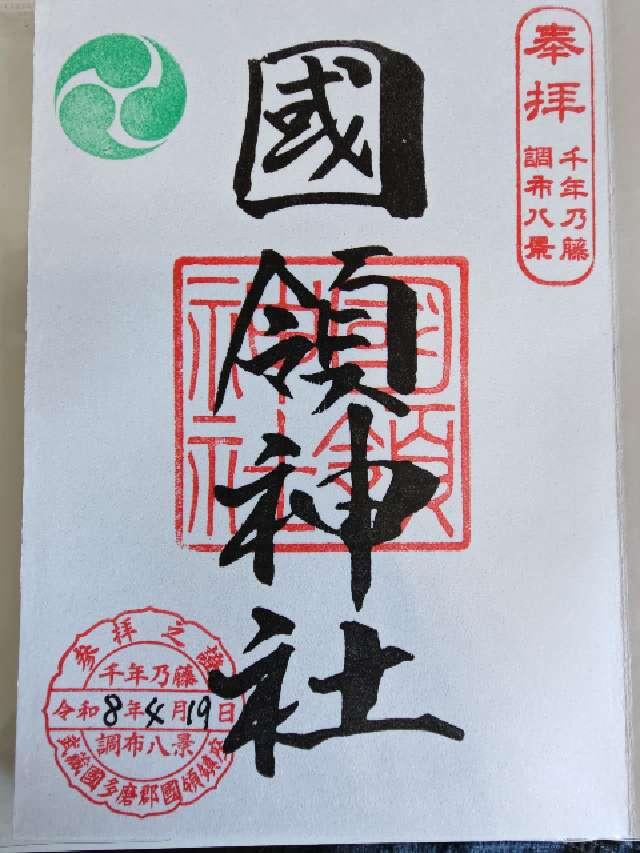 奉拝
千年乃藤
調布八景
國領神社
國領
神社
参拝之證
千年乃藤
令和8年4月19日
調布八景
武蔵國多磨郡國領鎮座